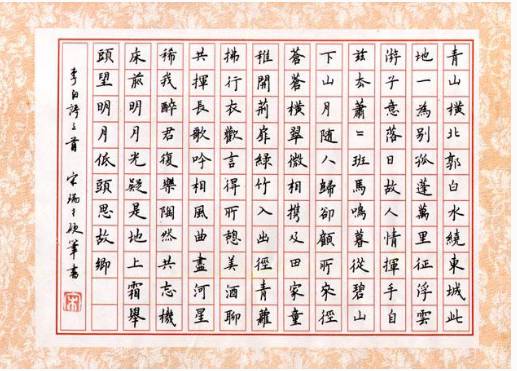 青山橫北郭白水繞東城此
地一為別孤蓬萬里征浮雲
游子意落日故人情揮手自
茲去蕭〻班馬鳴暮從碧山
下山月隨人歸卻顧所來徑
蒼蒼橫翠微相攜及田家童
稚開荊扉綠竹入幽徑青蘿
拂行衣歡言得所憩美酒聊
共揮長歌吟松風曲盡河星
稀我醉君復樂陶然共忘機
床前明月光疑是地上霜舉
頭望明月低頭思故鄉
李白詩三首 宋瑞硬筆書